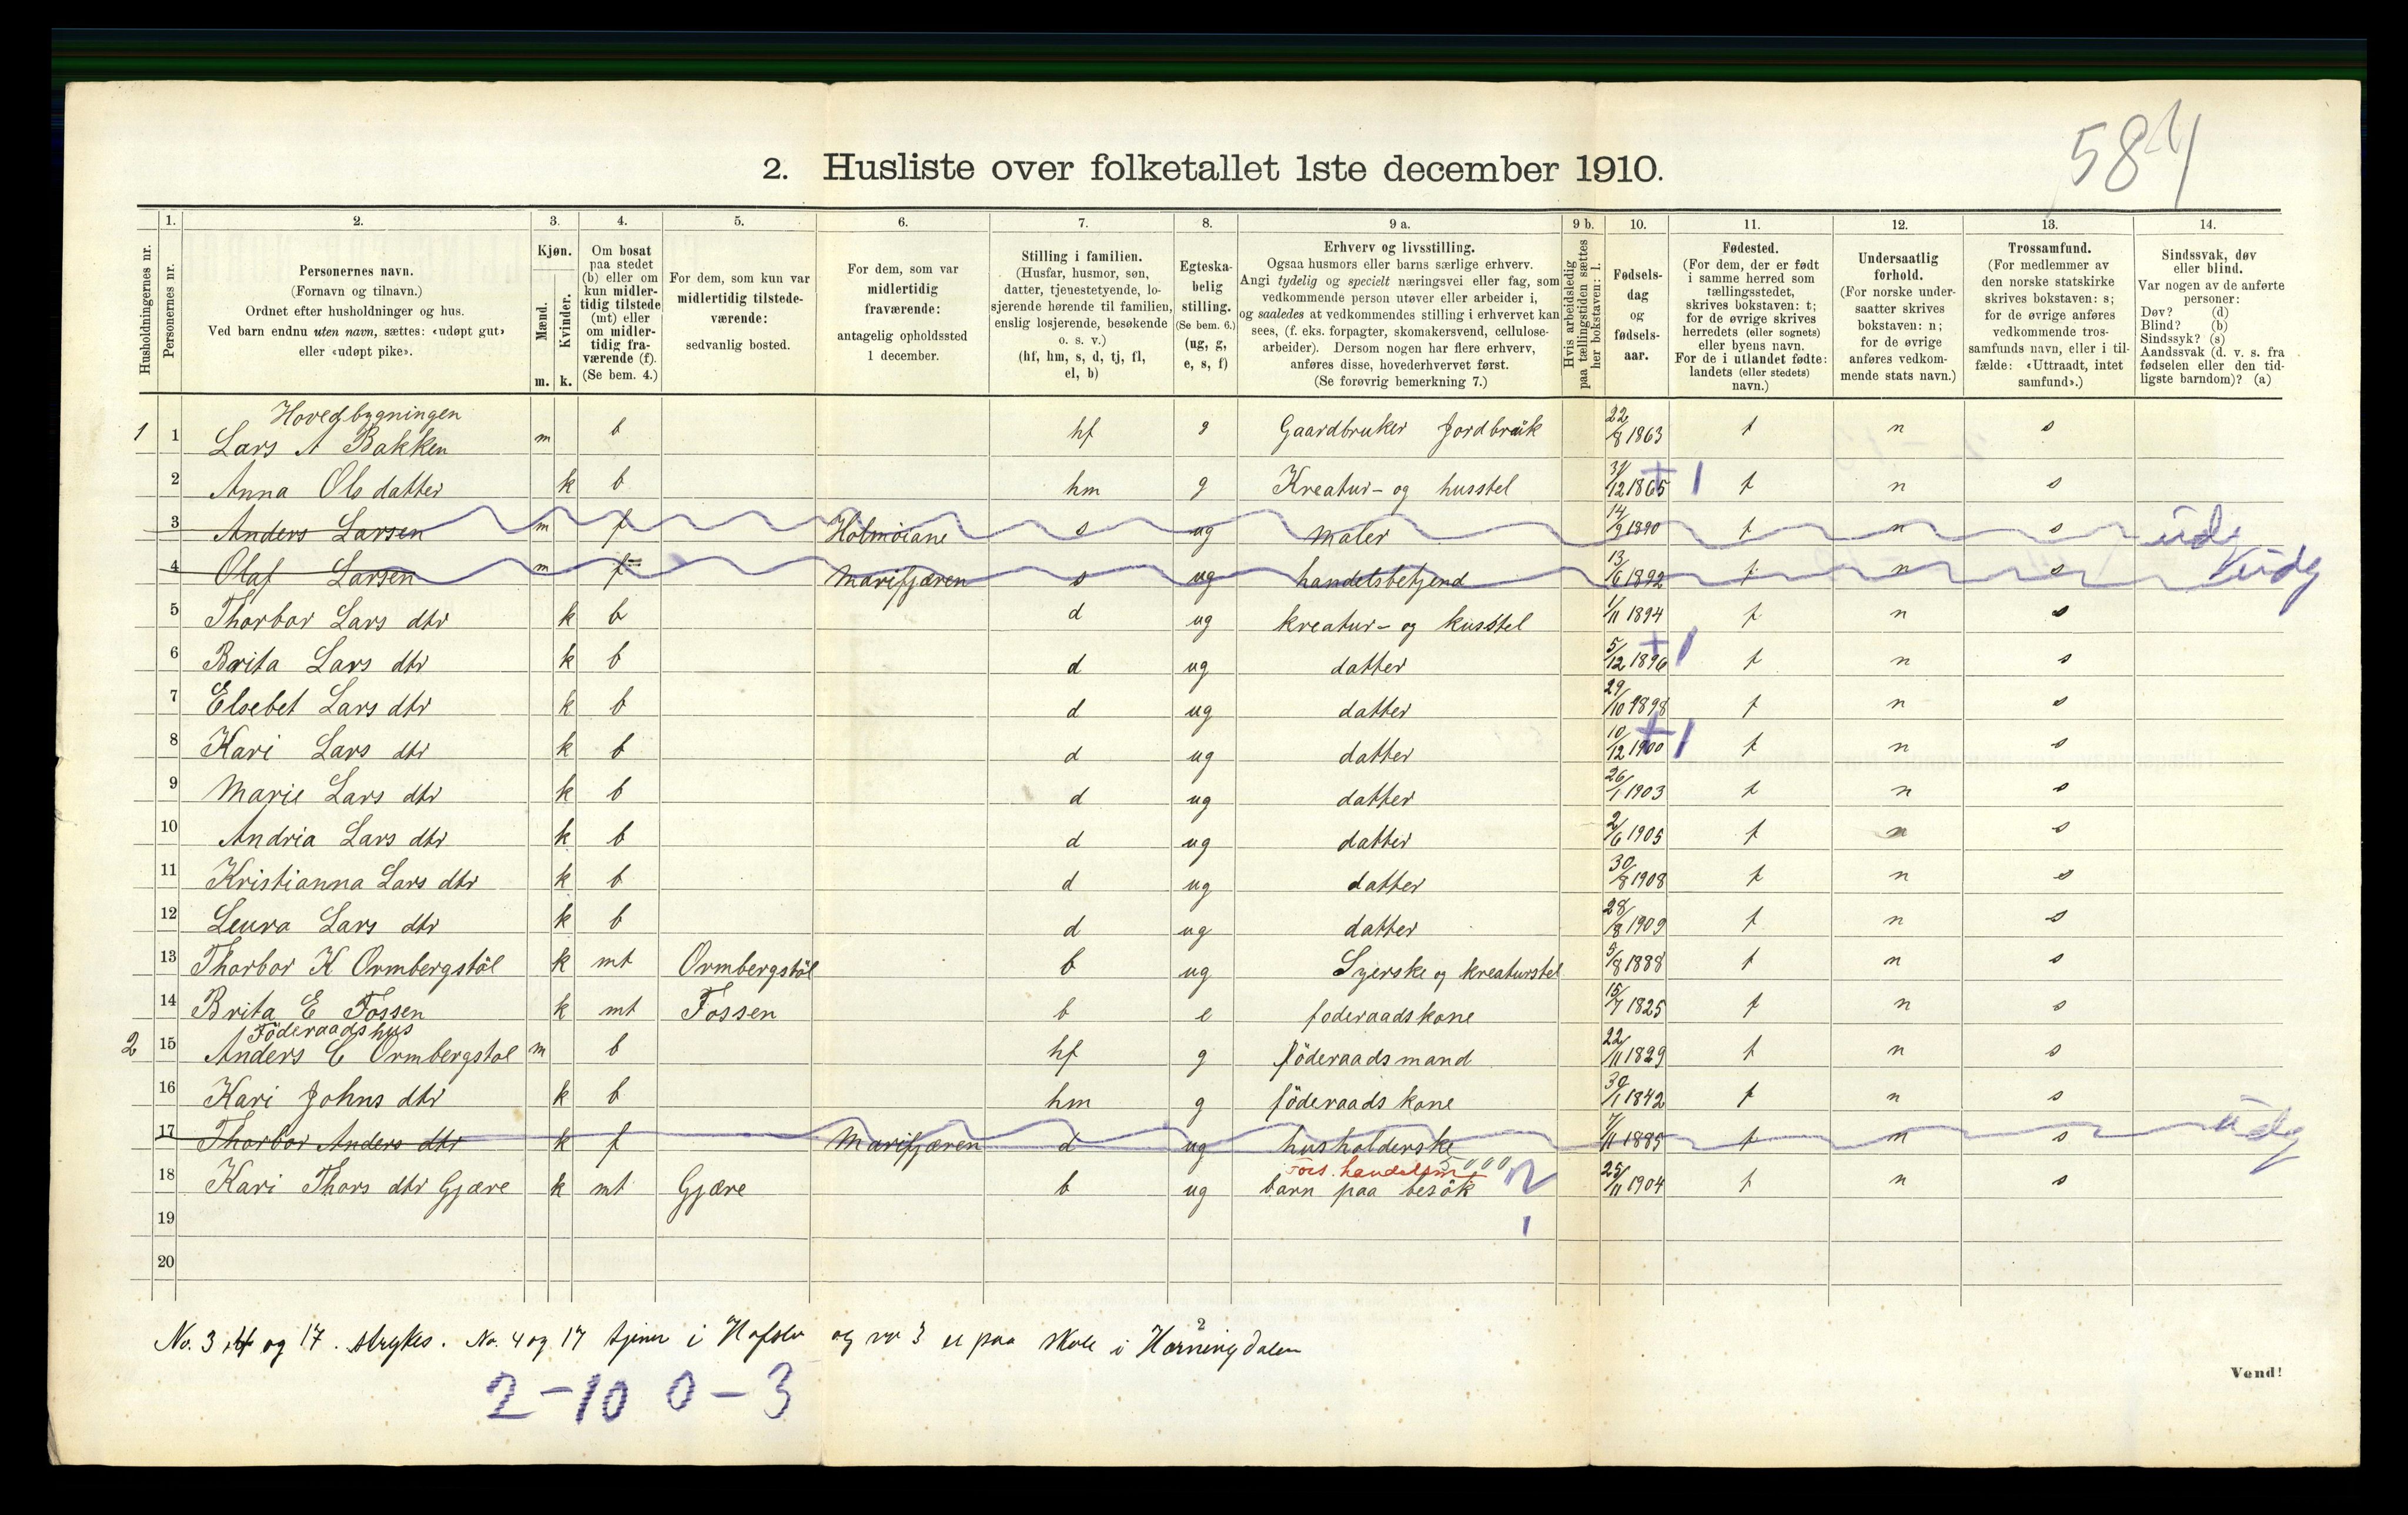 584
2. Husliste over folketallet 1ste december 1910.
Husholdningernes nr.
1.
Personernes nr.
2.
Personernes navn.
(Fornavn og tilnavn.)
Ordnet efter husholdninger og hus.
Ved barn endnu uten navn, sættes: «udøpt gut»
eller «udøpt pike».
3.
Kjøn.
Mænd.
Kvinder.
m. k.
4.
Om bosat
paa stedet
(b) eller om
kun midler-
tidig tilstede
(mt) eller
om midler-
tidig fra-
værende (f).
(Se bem. 4.)
5.
For dem, som kun var
midlertidig tilstede-
værende:
sedvanlig bosted.
6.
For dem, som var
midlertidig
fraværende:
antagelig opholdssted
1 december.
7.
Stilling i familien.
(Husfar, husmor, søn,
datter, tjenestetyende, lo-
sjerende hørende til familien,
enslig losjerende, besøkende
o. s. v.)
(hf, hm, s, d, tj, fl,
el, b)
8.
Egteska-
belig
stilling.
(Se bem. 6.)
(ug, g,
e, s, f)
9 a.
Erhverv og livsstilling.
Ogsaa husmors eller barns særlige erhverv.
Angi tydelig og specielt næringsvei eller fag, som
vedkommende person utøver eller arbeider i,
og saaledes at vedkommendes stilling i erhvervet kan
sees, (f. eks. forpagter, skomakersvend, cellulose-
arbeider). Dersom nogen har flere erhverv,
anføres disse, hovederhvervet først.
(Se forøvrig bemerkning 7.)
9 b.
Hvis arbeidsledig
paa tællingstiden sættes
her bokstaven: l.
10.
Fødsels-
dag
og
fødsels-
aar.
11.
Fødested.
(For dem, der er født
i samme herred som
tællingsstedet,
skrives bokstaven: t;
for de øvrige skrives
herredets (eller sognets)
eller byens navn.
For de i utlandet fødte:
landets (eller stedets)
navn.)
12.
Undersaatlig
forhold.
(For norske under-
saatter skrives
bokstaven: n;
for de øvrige
anføres vedkom-
mende stats navn.)
13.
Trossamfund.
(For medlemmer av
den norske statskirke
skrives bokstaven: s;
for de øvrige anføres
vedkommende tros-
samfunds navn, eller i til-
fælde: «Uttraadt, intet
samfund».)
14.
Sindssvak, døv
eller blind.
Var nogen av de anførte
personer:
Døv? (d)
Blind? (b)
Sindssyk? (s)
Aandssvak (d. v. s. fra
fødselen eller den tid-
ligste barndom)? (a)
Hovedbygningen
1 1 Lars A Bakken m b hf g Gaardbruker Jordbruk 22/8 1863 t n s
2 Anna Ols datter k b hm g Kreatur- og husstel 31/12 1865 + 1 t n s
3 Anders Larsen m f Holmöiane s ug maler 14/9 1890 t n s udg
4 Olaf Larsen m f Marifjæren s ug handelsbetjend 13/6 1892 t n s udg
5 Thorbor Lars dtr k b d ug kreatur- og husstel 1/11 1894 t n s
6 Brita Lars dtr k b d ug datter 5/12 1896 + 1 t n s
7 Elsebet Lars dtr k b d ug datter 29/10 1898 t n s
8 Kari Lars dtr k b d ug datter 10/12 1900 + 1 t n s
9 Marie Lars dtr k b d ug datter 26/1 1903 t n s
10 Andria Lars dtr k b d ug datter 2/6 1905 t n s
11 Kristianna Lars dtr k b d ug datter 30/8 1908 t n s
12 Leura Lars dtr k b d ug datter 28/8 1909 t n s
13 Thorbor K Ormbergstöl k mt Ormbergstöl b ug Syerske og kreaturstel 5/8 1888 t n s
14 Brita E Fossen k mt Fossen b e foderaadskone 15/7 1825 t n s
Föderaadshus
2 15 Anders E Ormbergstol m b hf g föderaadsmand 22/11 1829 t n s
16 Kari Johns dtr k b hm g föderaads kone 30/1 1842 t n s
17 Thorbor Anders dtr k f Marifjæren d ug husholderske 1885 t n s udg
Fors. handelsm
18 Kari Thors dtr Gjære k mt Gjære b ug barn paa besök 25/11 1904 t n s
19
1
20
2
No. 3, 4 og 17. strykes. No. 4 og 17 tjener i Hafslo og no 3 er paa skole i Horningdalen
Vend!
2-10 0-3